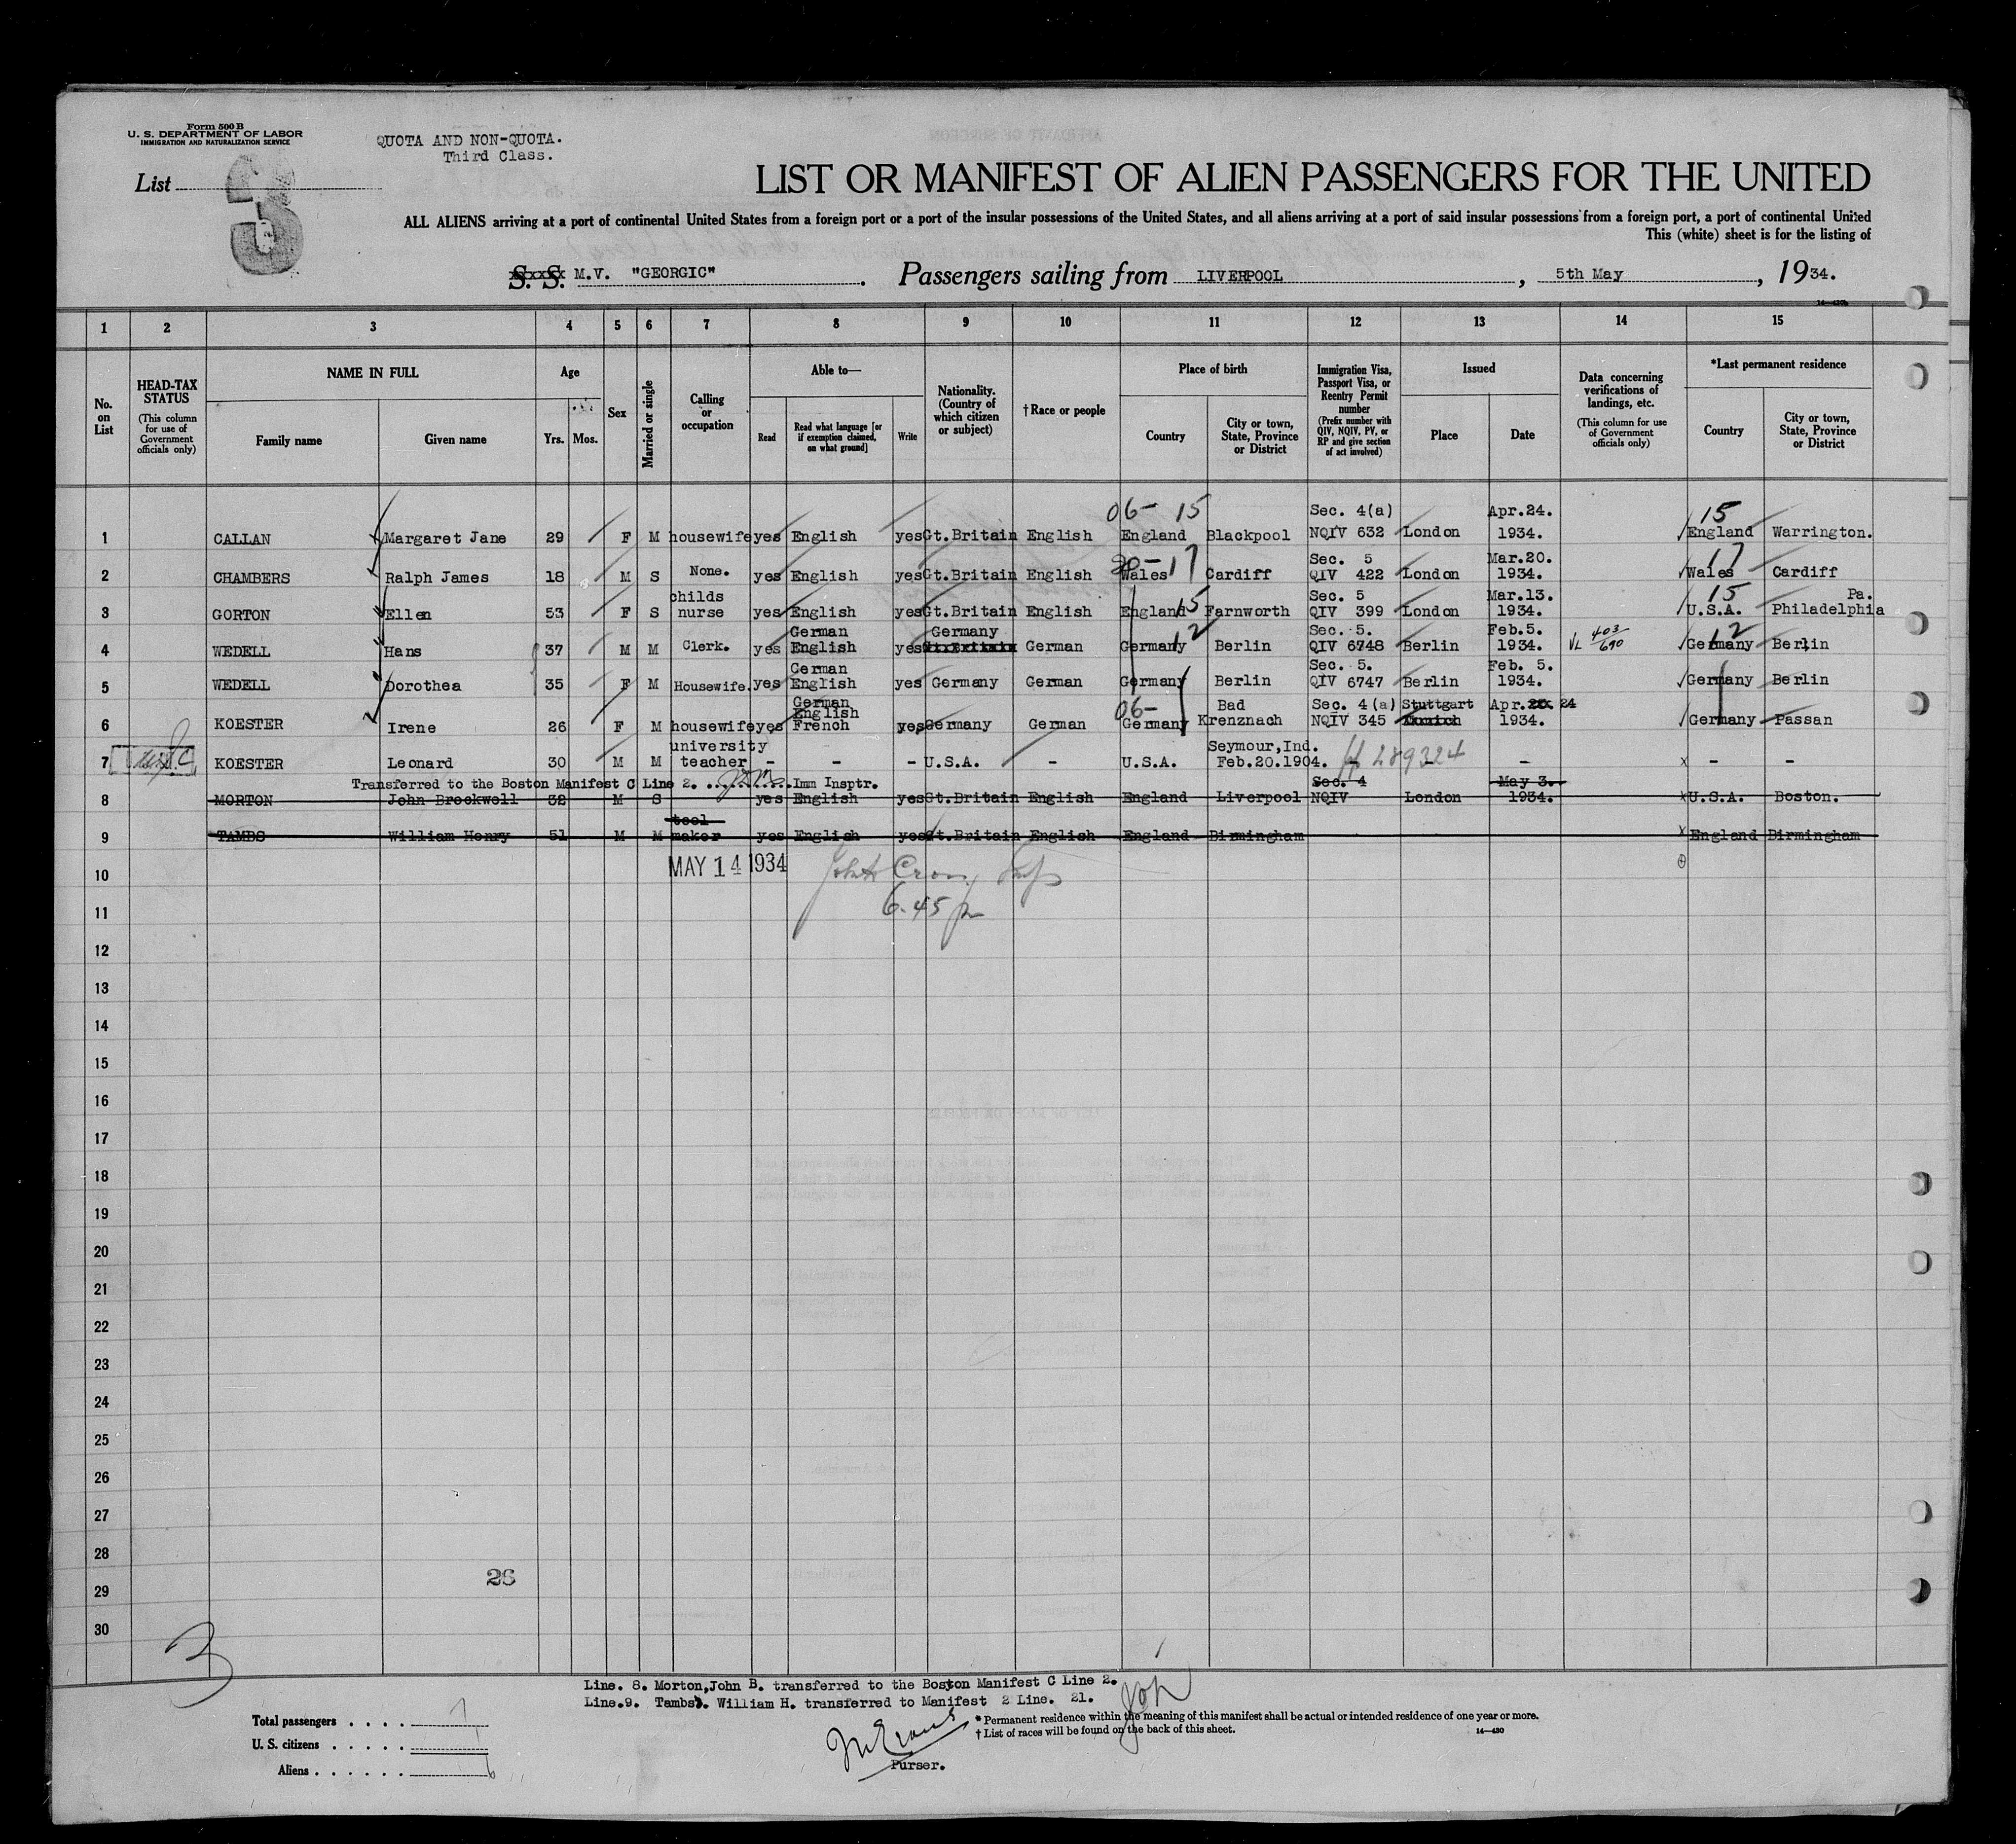 Form 500 B
U. S. DEPARTMENT OF LABOR
IMMIGRATION AND NATURALIZATION SERVICE
QUOTA AND NON-QUOTA.
Third Class.
List 3
LIST OR MANIFEST OF ALIEN PASSENGERS FOR THE UNITED
ALL ALIENS arriving at a port of continental United States from a foreign port or a port of the insular possessions of the United States, and all aliens arriving at a port of said insular possessions from a foreign port, a port of continental United
This (white) sheet is for the listing of
S. S. M.V. "GEORGIC". Passengers sailing from LIVERPOOL, 5th May, 1934.
14—430b
1 2 3 4 5 6 7 8 9 10 11 12 13 14 15
No. on List
HEAD-TAX STATUS (This column for use of Government officials only)
NAME IN FULL Family name Given name
Age Yrs. Mos.
Sex
Married or single
Calling or occupation
Able to— Read Read what language [or if exemption claimed, on what ground] Write
Nationality. (Country of which citizen or subject)
†Race or people
Place of birth Country City or town, State, Province or District
Immigration Visa, Passport Visa, or Reentry Permit number (Prefix number with QIV, NQIV, PV, or RP and give section of act involved)
Issued Place Date
Data concerning verifications of landings, etc. (This column for use of Government officials only)
*Last permanent residence Country City or town, State, Province or District
06- 15 Sec. 4(a) Apr.24. 15
1 CALLAN Margaret Jane 29 F M housewife yes English yes Gt.Britain English England Blackpool NQIV 632 London 1934. England Warrington.
30-17 Sec. 5 Mar.20. 17
2 CHAMBERS Ralph James 18 M S None. yes English yes Gt.Britain English Wales Cardiff QIV 422 London 1934. Wales Cardiff
childs 15 Sec. 5 Mar.13. 15 Pa.
3 GORTON Ellen 53 F S nurse yes English yes Gt.Britain English England Farnworth QIV 399 London 1934. U.S.A. Philadelphia
German Germany 12 Sec. 5. Feb.5. 403/690 12
4 WEDELL Hans 37 M M Clerk. yes English yes Gt.Britain German Germany Berlin QIV 6748 Berlin 1934. VL Germany Berlin
German Sec. 5. Feb. 5.
5 WEDELL Dorothea 35 F M Housewife. yes English yes Germany German Germany Berlin QIV 6747 Berlin 1934. Germany Berlin
German English 06- Bad Sec. 4(a) Stuttgart Apr. 24
6 KOESTER Irene 26 F M housewife yes French yes Germany German Germany Krenznach NQIV 345 Munich 1934. Germany Passan
university Seymour,Ind. 289324
7 KOESTER Leonard 30 M M teacher - - - U.S.A. - U.S.A. Feb.20.1904. - - - - -
Transferred to the Boston Manifest C Line 2. Imm Insptr. Sec. 4 May 3.
8 MORTON John Brockwell 32 M S yes English yes Gt.Britain English England Liverpool NQIV London 1934. U.S.A. Boston.
tool
9 TAMBS William Henry 51 M M maker yes English yes Gt.Britain English England Birmingham England Birmingham
10 MAY 14 1934
11 6.45 p
12
13
14
15
16
17
18
19
20
21
22
23
24
25
26
27
28
26
29
30
3
Line. 8. Morton,John B. transferred to the Boston Manifest C Line 2.
Line.9. Tambs. William H. transferred to Manifest 2 Line. 21.
Total passengers . . . . 7
U. S. citizens . . . . . 1
Aliens . . . . . . 6
* Permanent residence within the meaning of this manifest shall be actual or intended residence of one year or more.
† List of races will be found on the back of this sheet.
14—430
Purser.